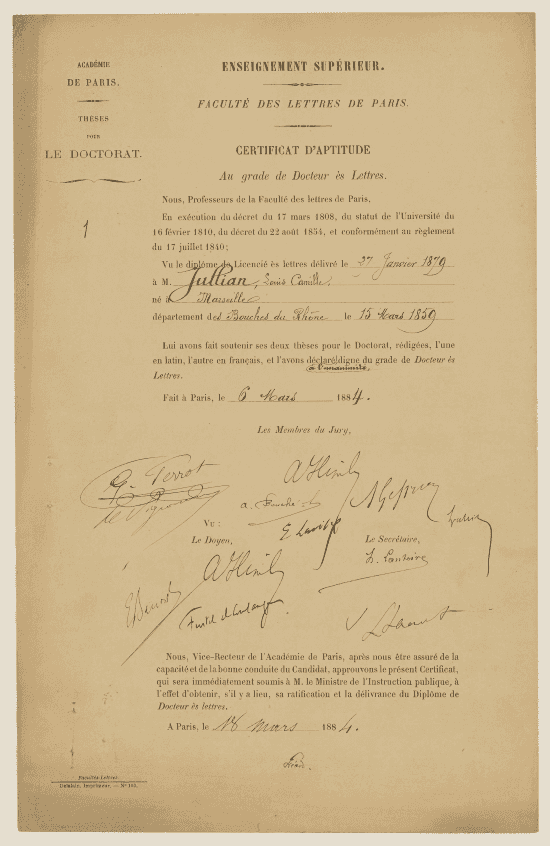 ACADÉMIE
DE PARIS.
THÈSES
POUR
LE DOCTORAT.
1
ENSEIGNEMENT SUPÉRIEUR.
FACULTÉ DES LETTRES DE PARIS.
CERTIFICAT D'APTITUDE
Au grade de Docteur ès Lettres.
Nous, Professeurs de la Faculté des lettres de Paris,
En exécution du décret du 17 mars 1808, du statut de l'Université du
16 février 1810, du décret du 22 août 1854, et conformément au règlement
du 17 juillet 1840;
Vu le diplôme de Licencié ès lettres délivré le 27 Janvier 1879
à M. Jullian, Louis Camille,
né à Marseille
département des Bouches du Rhône le 15 Mars 1859
Lui avons fait soutenir ses deux thèses pour le Doctorat, rédigées, l'une
en latin, l'autre en français, et l'avons déclaré digne du grade de Docteur ès
à l'unanimité,
Lettres.
Fait à Paris, le 6 Mars 1884.
Les Membres du Jury,
G. Perrot
A Himly
A Geffroy
E Lavisse
Vu :
Le Doyen,
Le Secrétaire,
A Himly
H. Lantoine
E Benoist
Fustel de Coulanges
Nous, Vice-Recteur de l'Académie de Paris, après nous être assuré de la
capacité et de la bonne conduite du Candidat, approuvons le présent Certificat,
qui sera immédiatement soumis à M. le Ministre de l'Instruction publique, à
l'effet d'obtenir, s'il y a lieu, sa ratification et la délivrance du Diplôme de
Docteur ès lettres.
A Paris, le 18 mars 1884.
Gréard.
Facultés-Lettres
Delalain, Imprimeur. — N° 185.